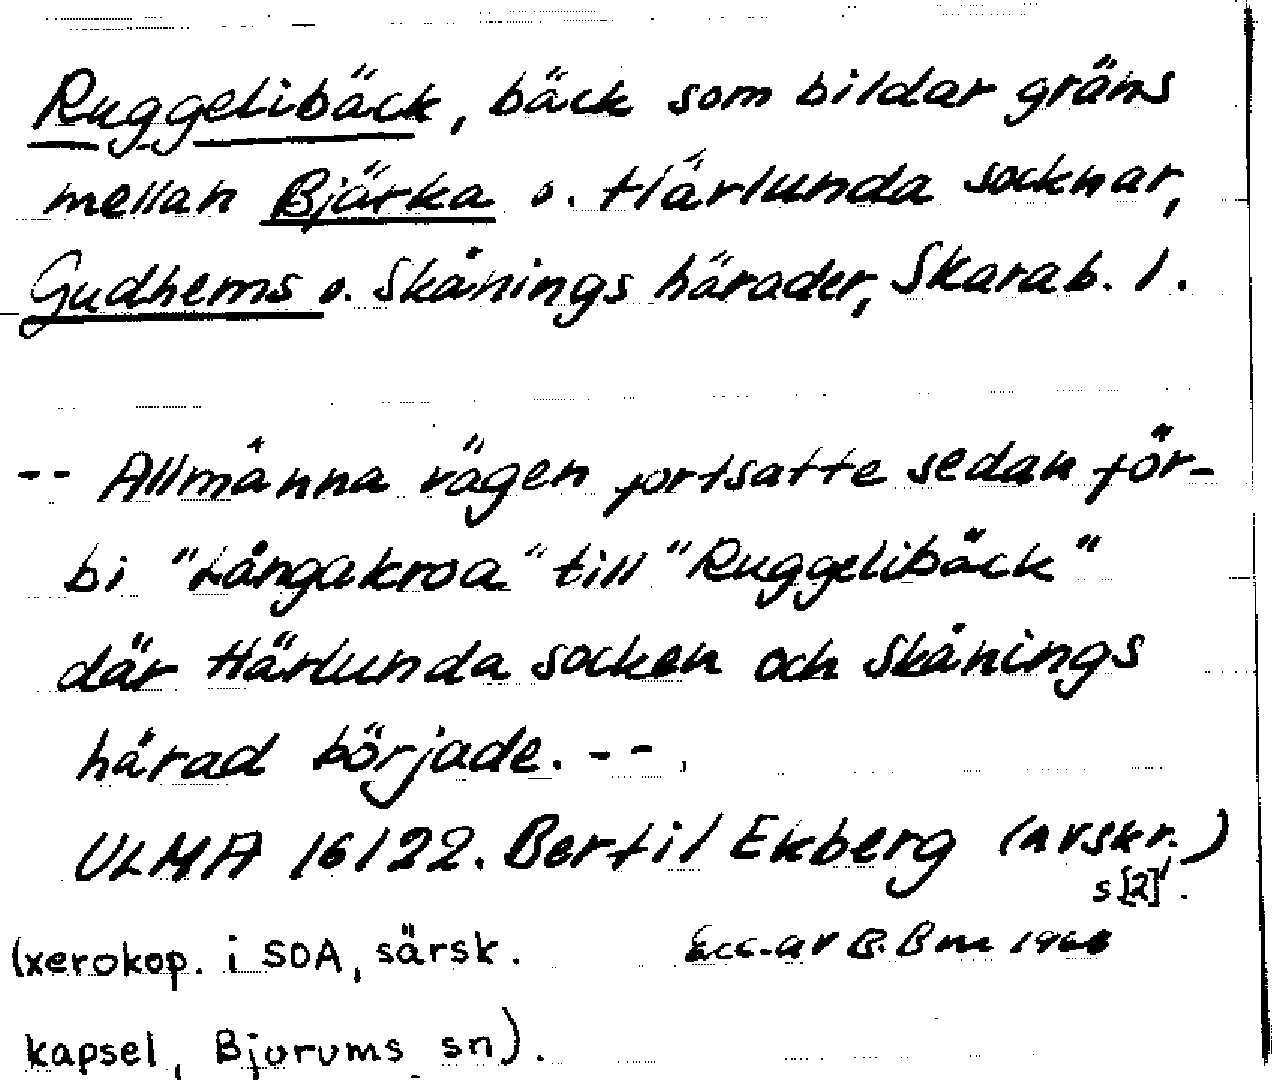 Ruggelibäck, bäck som bildar gräns
mellan Bjärka o. Härlunda socknar,
Gudhems o. Skånings härader, Skarab. l.
-- Allmänna vägen fortsatte sedan för-
bi "Långakroa" till "Ruggelibäck"
där Härlunda socken och Skånings
härad började. --
ULMA 16122. Bertil Ekberg (avskr.)
s [2].
(xerokop. i SOA, särsk.
Exc. av B. Bm 196
kapsel, Bjurums sn).